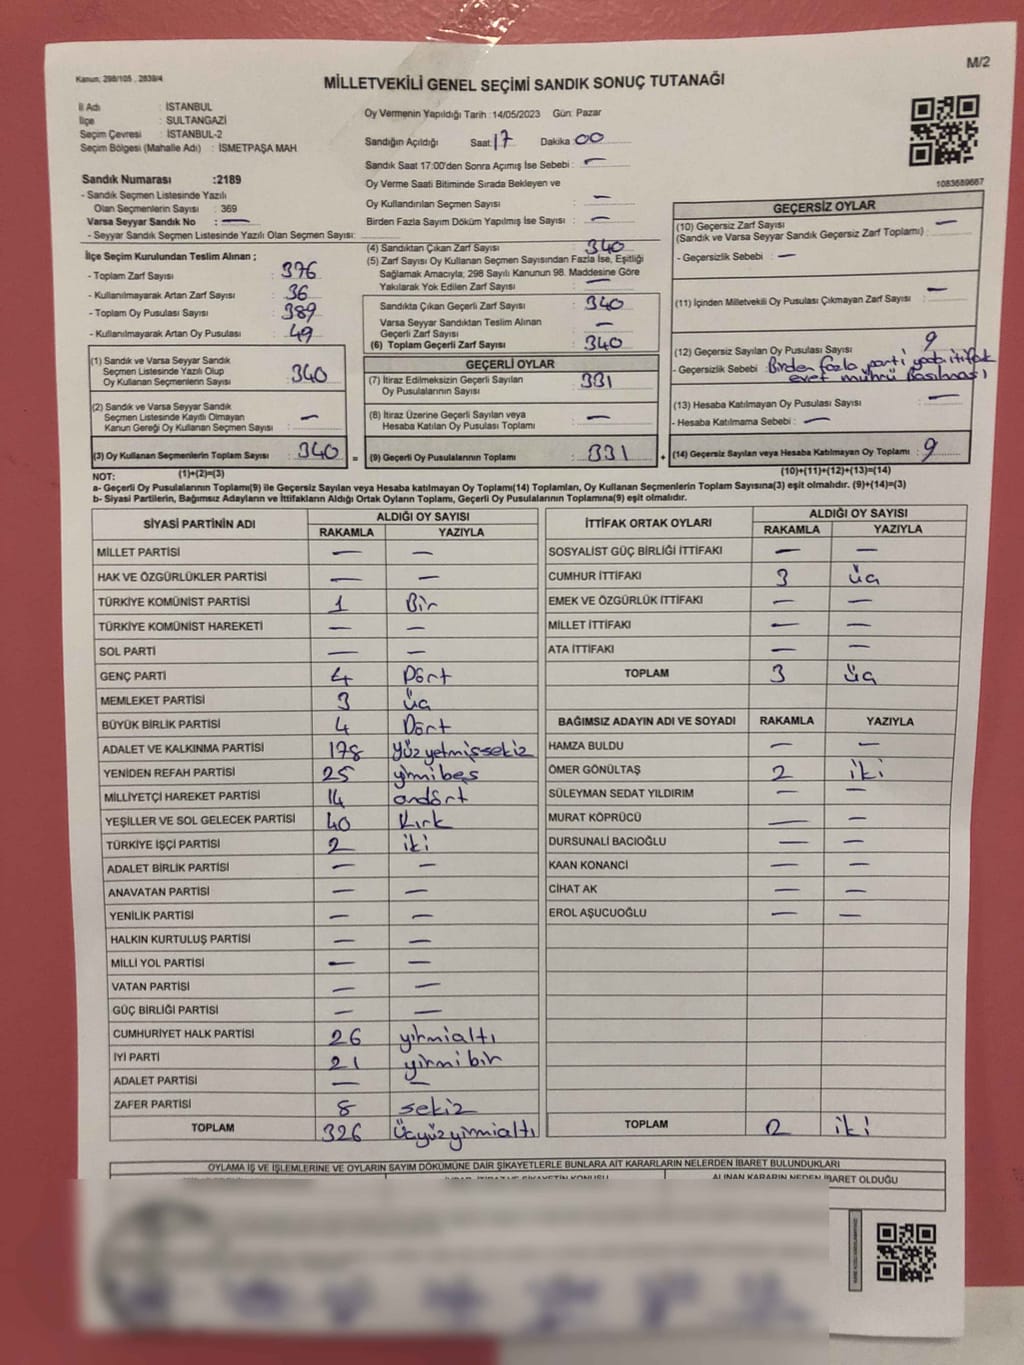 M/2
Kanun: 298/105 , 2839/4
MİLLETVEKİLİ GENEL SEÇİMİ SANDIK SONUÇ TUTANAĞI
İl Adı : İSTANBUL
İlçe : SULTANGAZİ
Seçim Çevresi : İSTANBUL-2
Seçim Bölgesi (Mahalle Adı) : İSMETPAŞA MAH
Sandık Numarası :2189
- Sandık Seçmen Listesinde Yazılı
Olan Seçmenlerin Sayısı : 369
Varsa Seyyar Sandık No : —
- Seyyar Sandık Seçmen Listesinde Yazılı Olan Seçmen Sayısı:
Oy Vermenin Yapıldığı Tarih : 14/05/2023 Gün: Pazar
Sandığın Açıldığı Saat 17 Dakika 00
Sandık Saat 17:00'den Sonra Açımış İse Sebebi : —
Oy Verme Saati Bitiminde Sırada Bekleyen ve
Oy Kullandırılan Seçmen Sayısı : —
Birden Fazla Sayım Döküm Yapılmış İse Sayısı : —
1083689667
İlçe Seçim Kurulundan Teslim Alınan ;
- Toplam Zarf Sayısı : 376
- Kullanılmayarak Artan Zarf Sayısı : 36
- Toplam Oy Pusulası Sayısı : 389
- Kullanılmayarak Artan Oy Pusulası : 49
(1) Sandık ve Varsa Seyyar Sandık
Seçmen Listesinde Yazılı Olup
Oy Kullanan Seçmenlerin Sayısı : 340
(2) Sandık ve Varsa Seyyar Sandık
Seçmen Listesinde Kayıtlı Olmayan
Kanun Gereği Oy Kullanan Seçmen Sayısı : —
(3) Oy Kullanan Seçmenlerin Toplam Sayısı : 340
(1)+(2)=(3)
(4) Sandıktan Çıkan Zarf Sayısı : 340
(5) Zarf Sayısı Oy Kullanan Seçmen Sayısından Fazla İse, Eşitliği
Sağlamak Amacıyla; 298 Sayılı Kanunun 98. Maddesine Göre
Yakılarak Yok Edilen Zarf Sayısı : —
Sandıkta Çıkan Geçerli Zarf Sayısı : 340
Varsa Seyyar Sandıktan Teslim Alınan
Geçerli Zarf Sayısı : —
(6) Toplam Geçerli Zarf Sayısı : 340
GEÇERLİ OYLAR
(7) İtiraz Edilmeksizin Geçerli Sayılan
Oy Pusulalarının Sayısı : 331
(8) İtiraz Üzerine Geçerli Sayılan veya
Hesaba Katılan Oy Pusulası Toplamı : —
= (9) Geçerli Oy Pusulalarının Toplamı : 331 +
GEÇERSİZ OYLAR
(10) Geçersiz Zarf Sayısı : —
(Sandık ve Varsa Seyyar Sandık Geçersiz Zarf Toplamı)
- Geçersizlik Sebebi : —
(11) İçinden Milletvekili Oy Pusulası Çıkmayan Zarf Sayısı : —
(12) Geçersiz Sayılan Oy Pusulası Sayısı : 9
- Geçersizlik Sebebi : Birden fazla parti yada itifak
evet mührü basılması
(13) Hesaba Katılmayan Oy Pusulası Sayısı : —
- Hesaba Katılmama Sebebi : —
(14) Geçersiz Sayılan veya Hesaba Katılmayan Oy Toplamı : 9
(10)+(11)+(12)+(13)=(14)
NOT:
a- Geçerli Oy Pusulalarının Toplamı(9) ile Geçersiz Sayılan veya Hesaba katılmayan Oy Toplamı(14) Toplamları, Oy Kullanan Seçmenlerin Toplam Sayısına(3) eşit olmalıdır. (9)+(14)=(3)
b- Siyasi Partilerin, Bağımsız Adayların ve İttifakların Aldığı Ortak Oyların Toplamı, Geçerli Oy Pusulalarının Toplamına(9) eşit olmalıdır.
SİYASİ PARTİNİN ADI ALDIĞI OY SAYISI
RAKAMLA YAZIYLA
MİLLET PARTİSİ — —
HAK VE ÖZGÜRLÜKLER PARTİSİ — —
TÜRKİYE KOMÜNİST PARTİSİ 1 Bir
TÜRKİYE KOMÜNİST HAREKETİ — —
SOL PARTİ — —
GENÇ PARTİ 4 Dört
MEMLEKET PARTİSİ 3 üç
BÜYÜK BİRLİK PARTİSİ 4 Dört
ADALET VE KALKINMA PARTİSİ 178 yüzyetmişsekiz
YENİDEN REFAH PARTİSİ 25 yirmibeş
MİLLİYETÇİ HAREKET PARTİSİ 14 ondört
YEŞİLLER VE SOL GELECEK PARTİSİ 40 Kırk
TÜRKİYE İŞÇİ PARTİSİ 2 iki
ADALET BİRLİK PARTİSİ — —
ANAVATAN PARTİSİ — —
YENİLİK PARTİSİ — —
HALKIN KURTULUŞ PARTİSİ — —
MİLLİ YOL PARTİSİ — —
VATAN PARTİSİ — —
GÜÇ BİRLİĞİ PARTİSİ — —
CUMHURİYET HALK PARTİSİ 26 yirmialtı
İYİ PARTİ 21 yirmibir
ADALET PARTİSİ — —
ZAFER PARTİSİ 8 sekiz
TOPLAM 326 Üçyüzyirmialtı
İTTİFAK ORTAK OYLARI ALDIĞI OY SAYISI
RAKAMLA YAZIYLA
SOSYALİST GÜÇ BİRLİĞİ İTTİFAKI — —
CUMHUR İTTİFAKI 3 üç
EMEK VE ÖZGÜRLÜK İTTİFAKI — —
MİLLET İTTİFAKI — —
ATA İTTİFAKI — —
TOPLAM 3 üç
BAĞIMSIZ ADAYIN ADI VE SOYADI RAKAMLA YAZIYLA
HAMZA BULDU — —
ÖMER GÖNÜLTAŞ 2 iki
SÜLEYMAN SEDAT YILDIRIM — —
MURAT KÖPRÜCÜ — —
DURSUNALİ BACIOĞLU — —
KAAN KONANCİ — —
CİHAT AK — —
EROL AŞUCUOĞLU — —
TOPLAM 2 iki
OYLAMA İŞ VE İŞLEMLERİNE VE OYLARIN SAYIM DÖKÜMÜNE DAİR ŞİKAYETLERLE BUNLARA AİT KARARLARIN NELERDEN İBARET BULUNDUKLARI
ALINAN KARARIN NEDEN İBARET OLDUĞU